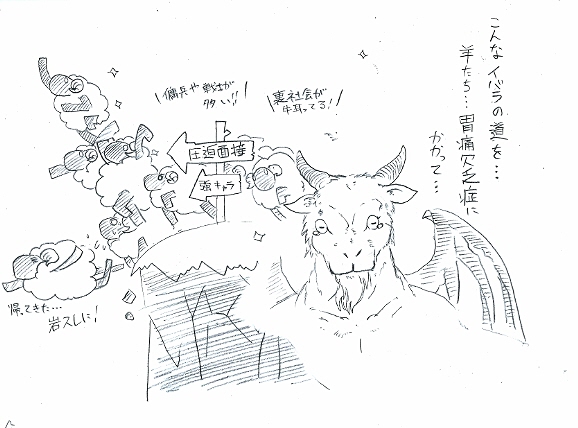 こんなイバラの道を…
羊たち…胃痛欠乏症に
かかって…
裏社会が
牛耳ってる!!
傭兵や戦士が
多い!!
圧迫面接
強キャラ
帰ってきた…
岩スレに!